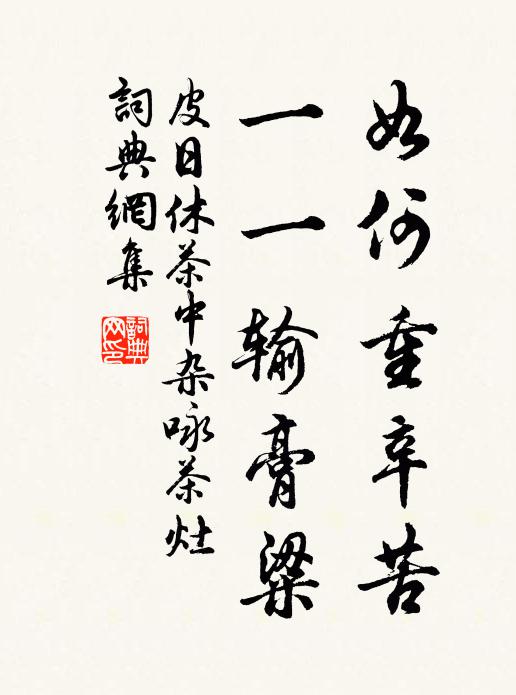 如何重辛苦
一一输膏粱
皮日休茶中杂咏茶灶
詞典網集
詞典网印